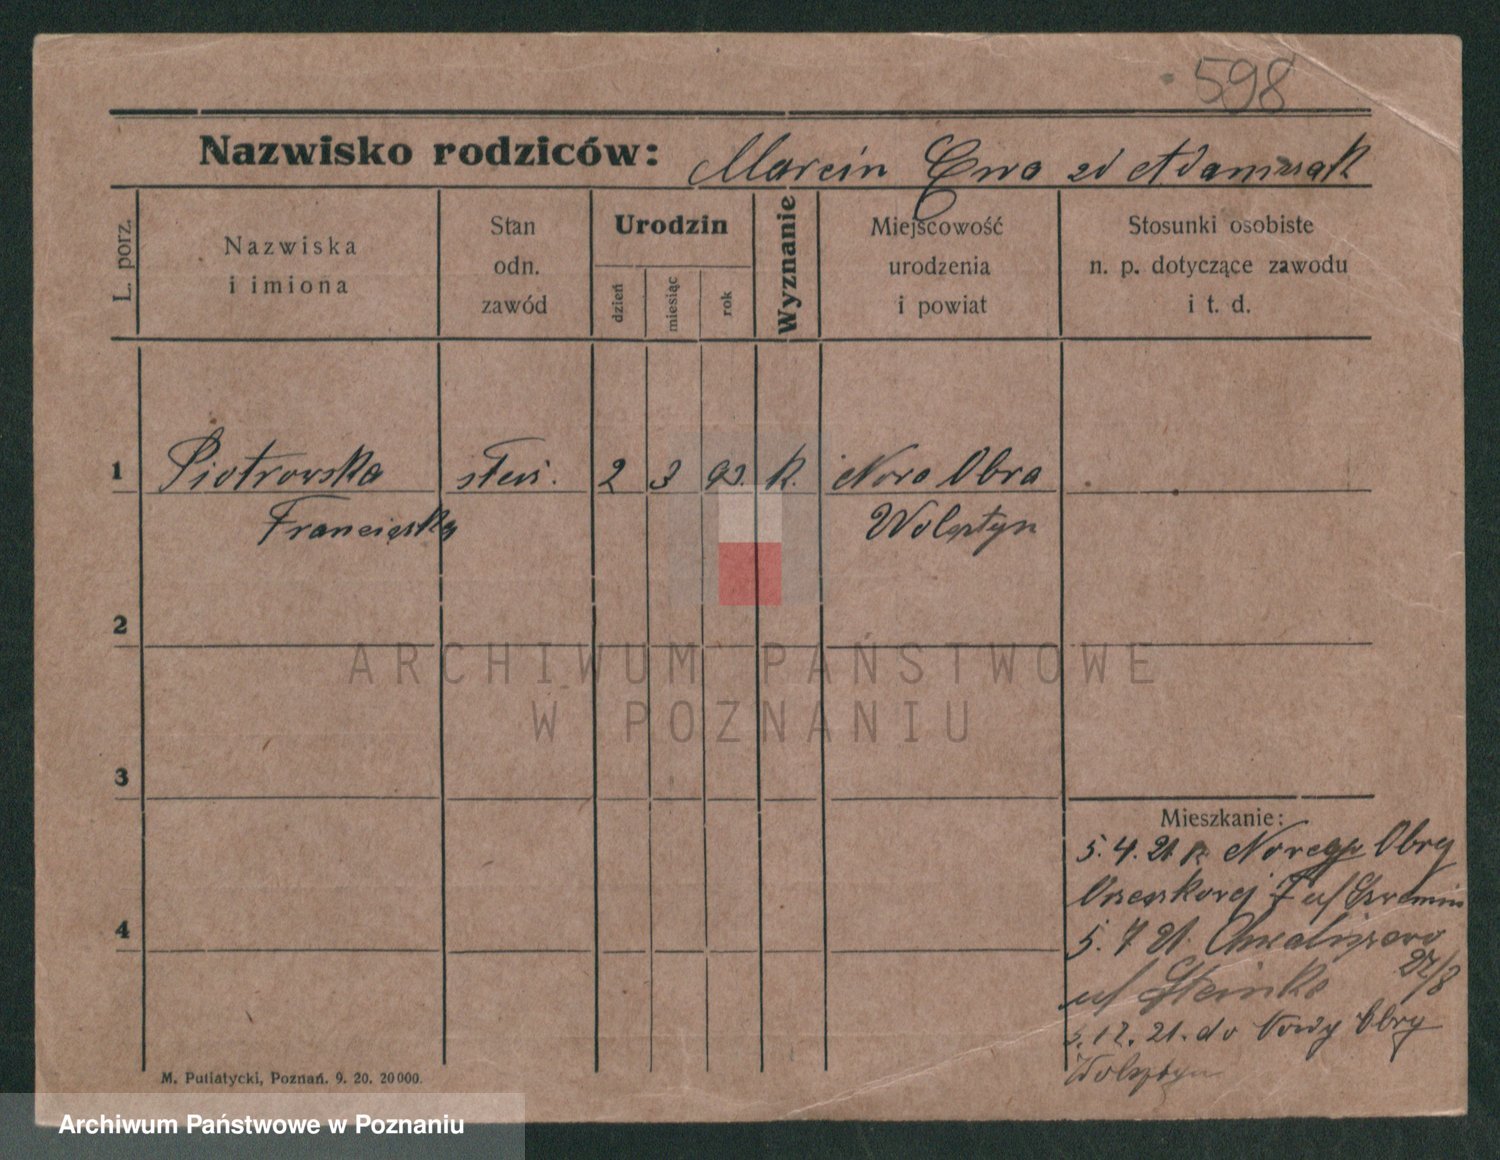 598
Nazwisko rodziców: Marcin Ewa zd Adamczak
L. porz.
Nazwiska
i imiona
Stan
odn.
zawód
Urodzin
dzień
miesiąc
rok
Wyznanie
Miejscowość
urodzenia
i powiat
Stosunki osobiste
n. p. dotyczące zawodu
i t. d.
1 Piotrowska 2 3 93. K. Nowa Obra
Franciszka Wolsztyn
2
ARCHIWUM PAŃSTWOWE
W POZNANIU
3
Mieszkanie:
5. 4. 21. z Nowego Obry
7 u/
4
5. 7 21.
27/8
u/ Steinke
5. 12. 21. do Nowy Obry
Wolsztyn
M. Putiatycki, Poznań. 9. 20. 20000.
Archiwum Państwowe w Poznaniu